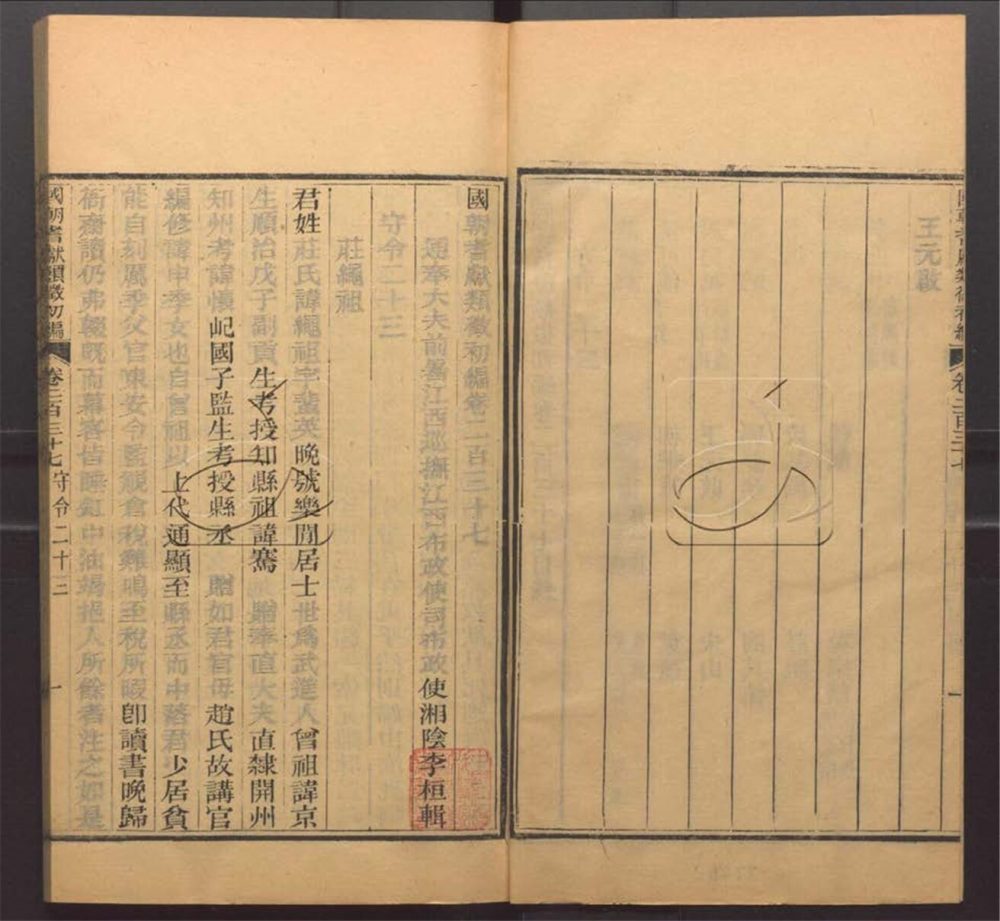 王元啟
國朝耆獻類徵初編卷二百三十七
通奉大夫前署江西巡撫江西布政使司布政使湘陰李桓輯
守令二十三
莊繩祖
君姓莊氏諱繩祖字蜚英晚號樂閒居士世爲武進人曾祖諱京
生順治戊子副貢生考授知縣祖諱騫 贈奉直大夫直隸開州
知州考諱愼屺國子監生考授縣丞 贈如君官母趙氏故講官
編修諱申季女也自曾祖以上代通顯至縣丞而中落君少居貧
能自刻厲季父官東安令監雜倉稅雞鳴至稅所暇卽讀書晚歸
衙齋讀仍弗輟旣而幕客皆睡釭中油竭挹人所餘者注之如是
國朝耆獻類徵初編 卷二百三十七 守令二十三 一